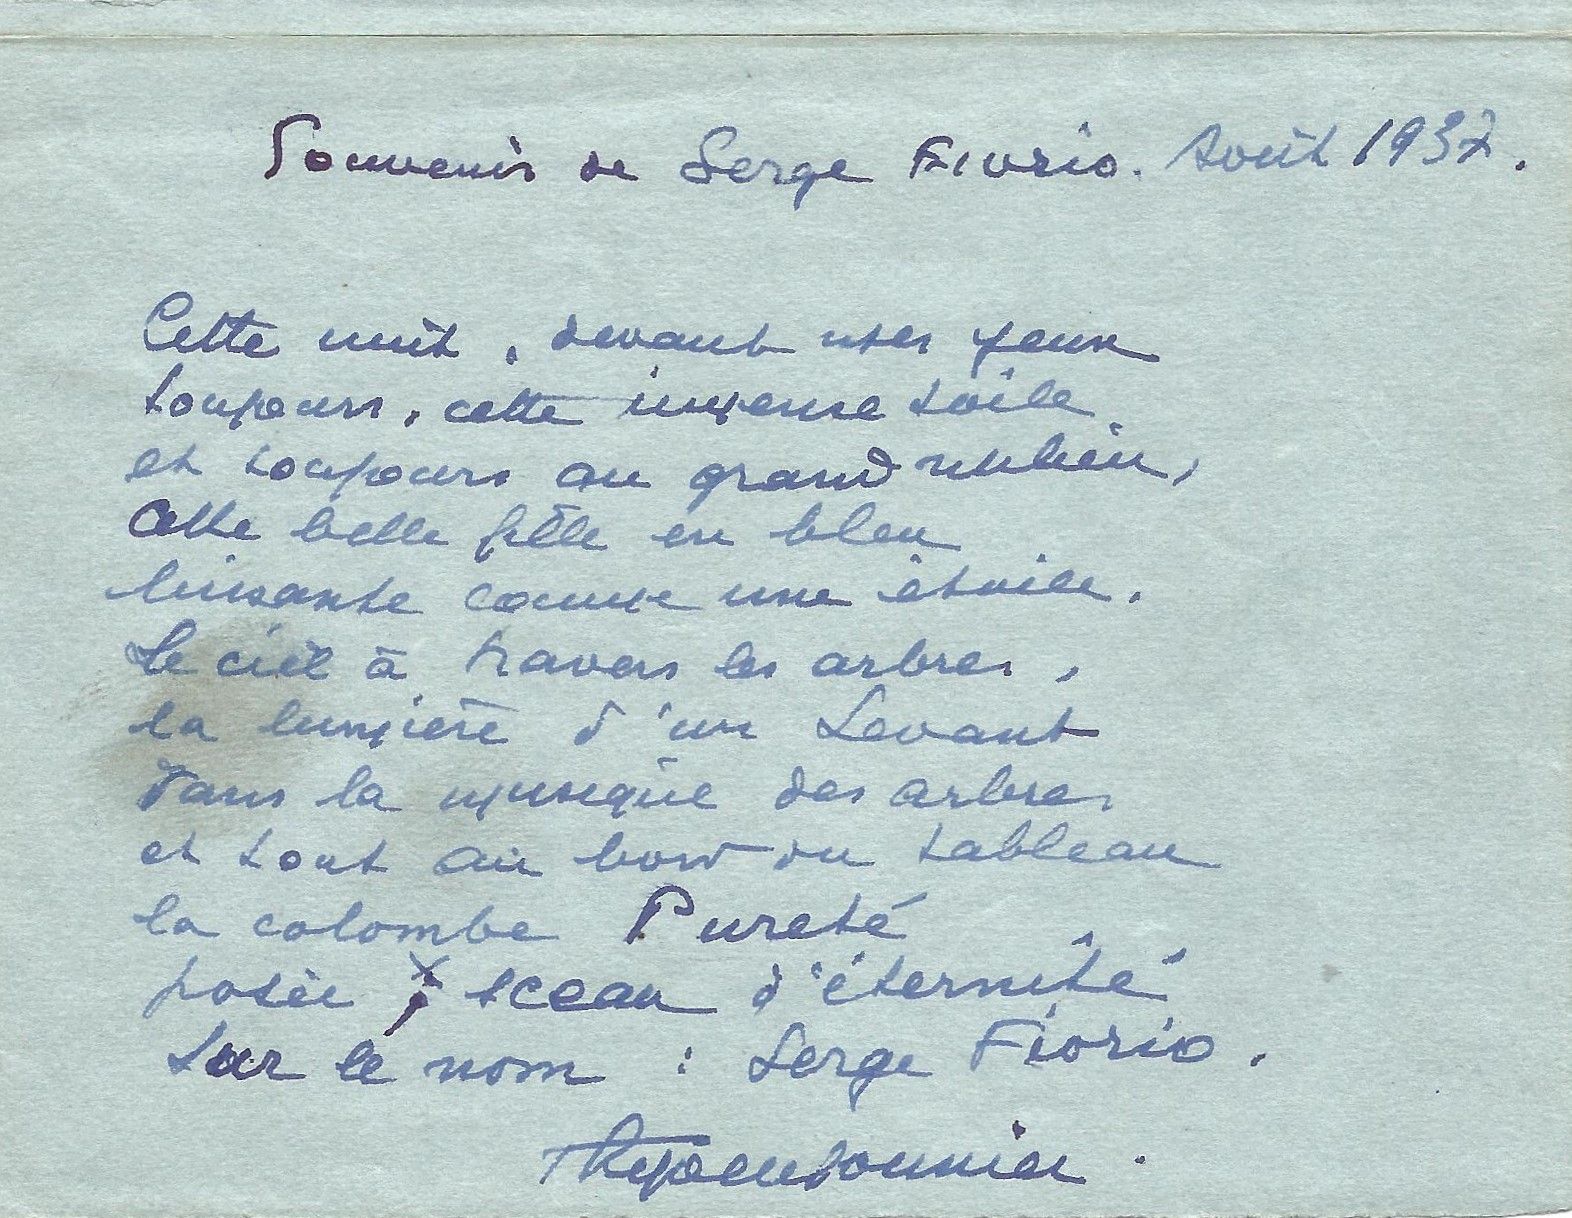 Souvenir de Serge Fiorio. Août 1937.
Cette nuit, devant mes yeux
toujours, cette immense toile
et toujours au grand milieu,
cette belle fille en bleu
luisante comme une étoile.
Le ciel à travers les arbres,
la lumière d'un Levant
dans la musique des arbres
et tout au bord du tableau
la colombe Pureté
posée, sceau d'éternité
sur le nom : Serge Fiorio.
Thyde Monnier.